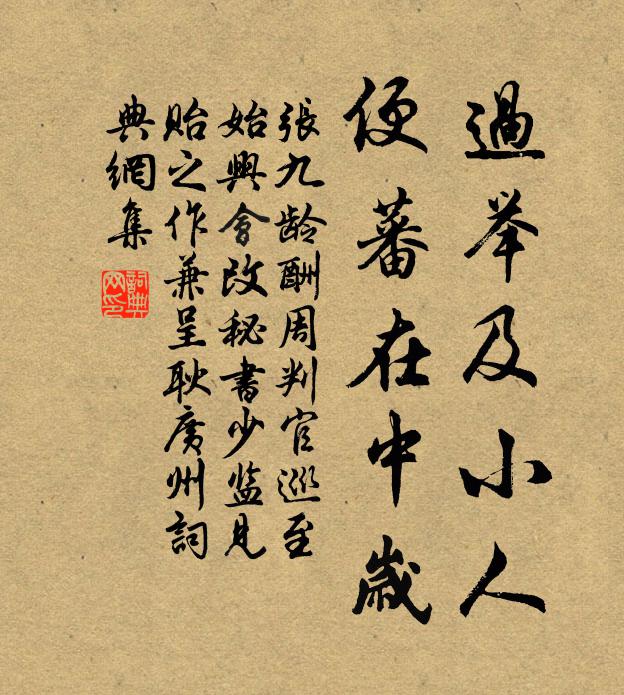 過举及小人
便蕃在中歳
張九龄酬周判官巡至
始興會改秘書少监見
貽之作兼呈耿廣州詞
典網集
詞典
网印